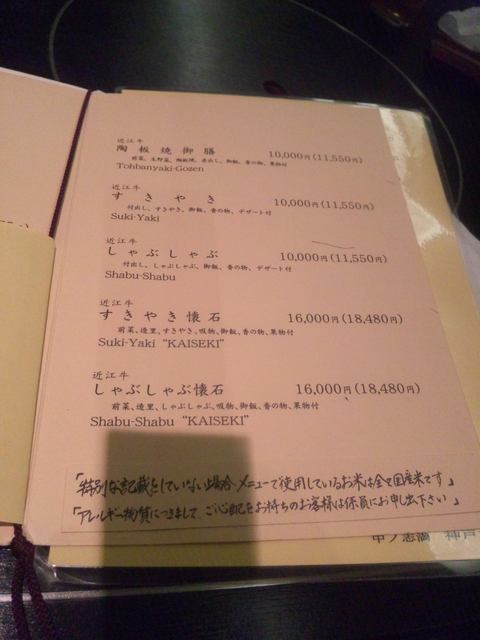 近江牛
陶板焼御膳 10,000円(11,550円)
Tohbanyaki-Gozen
近江牛
すきやき 10,000円(11,550円)
付出し、すきやき、御飯、香の物、デザート付
Suki-Yaki
近江牛
しゃぶしゃぶ 10,000円(11,550円)
付出し、しゃぶしゃぶ、御飯、香の物、デザート付
Shabu-Shabu
近江牛
すきやき懐石 16,000円(18,480円)
前菜、造里、すきやき、吸物、御飯、香の物、果物付
Suki-Yaki “KAISEKI”
近江牛
しゃぶしゃぶ懐石 16,000円(18,480円)
前菜、造里、しゃぶしゃぶ、吸物、御飯、香の物、果物付
Shabu-Shabu “KAISEKI”
「特別な記載をしていない場合、メニューで使用しているお米は全て国産米です」
「アレルギー物質につきまして、ご心配をお持ちのお客様は係員にお申し出下さい」
神戸